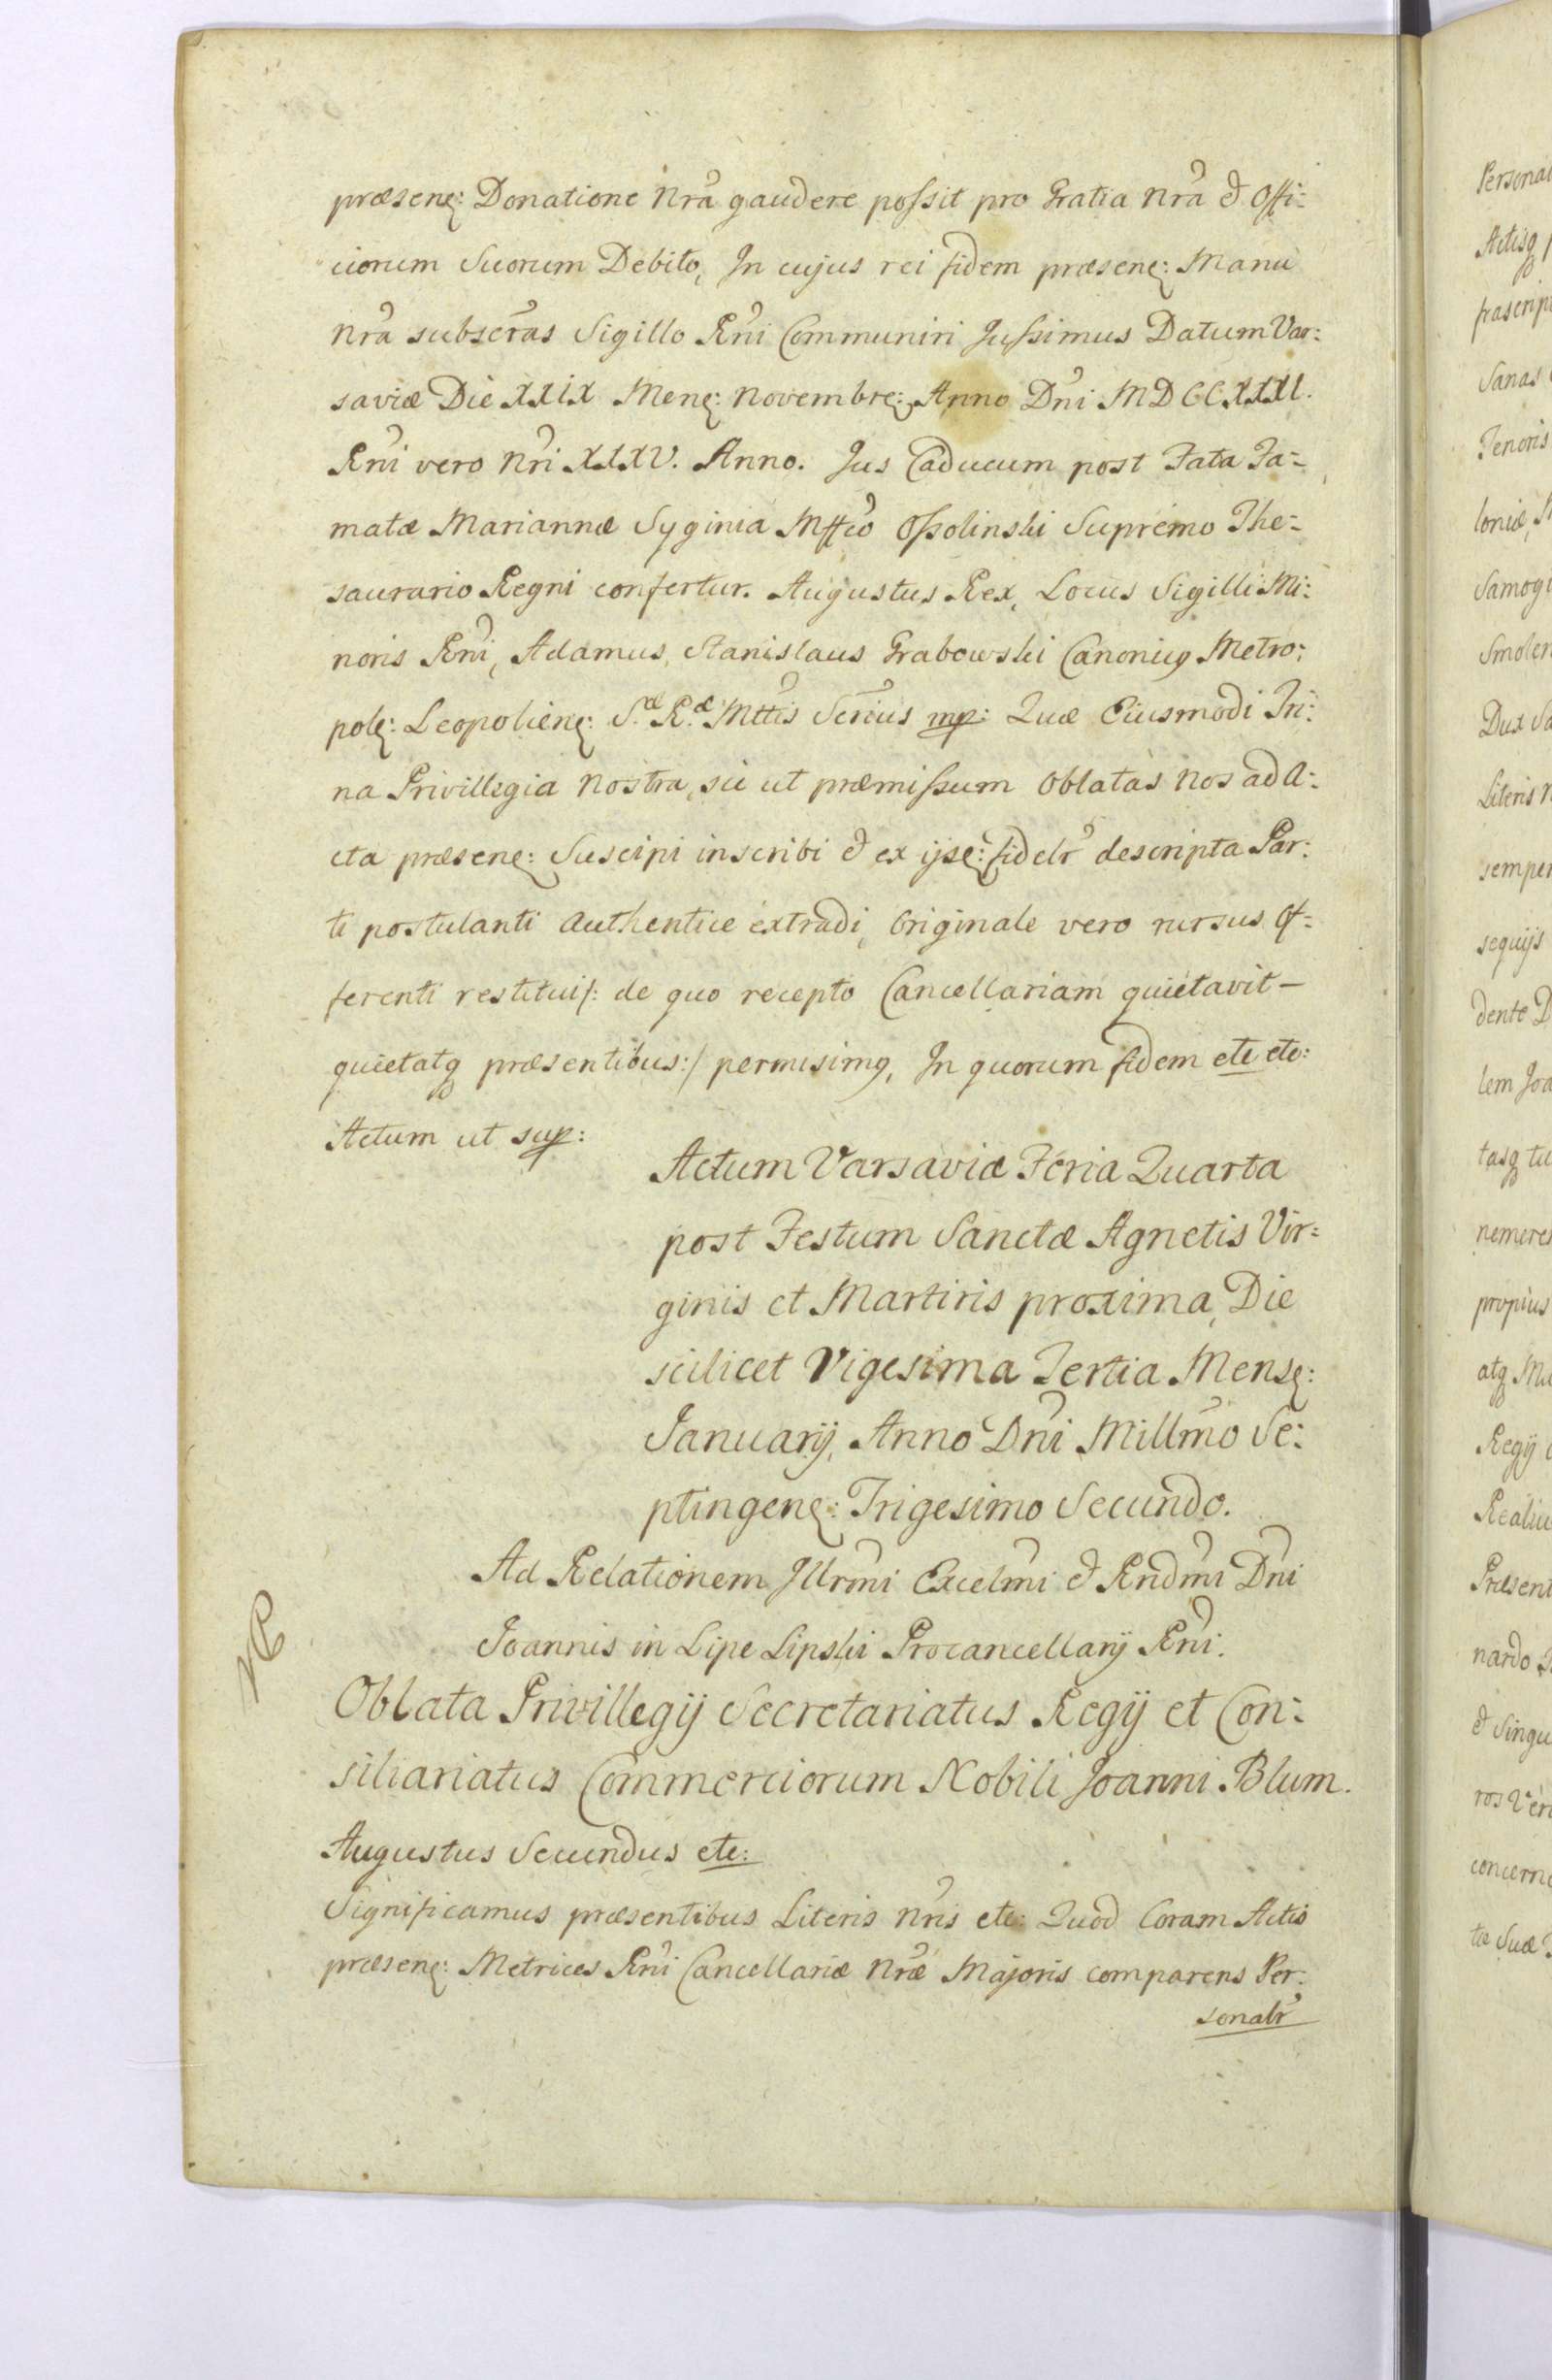 præsenȩ: Donatione Nrã gaudere possit pro Gratia Nrã & Offi:
ciorum Suorum Debito, In cujus rei fidem præsenȩ: Manu
Nrã subscr̃as Sigillo Rñi Communiri Jussimus Datum Var:
saviæ Die XXIX Menȩ: Novembrȩ: Anno Dñi MDCCXXXI.
Rñi vero Nri XXXV. Anno. Jus Caducum post Fata Fa=
matæ Mariannæ Syginia Mffco Ossolinski Supremo The=
saurario Regni confertur. Augustus Rex, Locus Sigilli Mi:
noris Rñi, Adamus Stanislaus Grabowski Canonicꝯ Metro:
polȩ: Leopolienȩ: S.æ R.æ Mttis Scrius mp: Quæ Eiusmodi Tri:
na Privillegia Nostra, sic ut præmissum Oblatas Nos ad A:
cta præsenȩ: Suscipi inscribi & ex ijsȩ: fidelr descripta Par:
ti postulanti Authentice extradi, Originale vero rursus Of=
ferenti restitui/: de quo recepto Cancellariam quietavit –
quietatꝗ præsentibus:/ permisimꝯ, In quorum fidem etc etc:
Actum ut sup:
Actum Varsaviæ Feria Quarta
post Festum Sanctæ Agnetis Vir=
ginis et Martiris proxima, Die
scilicet Vigesima Tertia Mensȩ:
Januarij, Anno Dñi Millmo Se:
ptingenȩ: Trigesimo Secundo.
Ad Relationem Jllrmi Excelmi & Rndmi Dñi
Joannis in Lipe Lipski Procancellarij Rñi.
Oblata Privillegij Secretariatus Regij et Con:
siliariatus Commerciorum Nobili Joanni Blum.
Augustus Secundus etc:
Significamus præsentibus Literis Nris etc: Quod Coram Actis
præsenȩ: Metrices Rñi Cancellariæ Nræ Majoris comparens Per:
sonalr
Persona
Actisꝗ
Sanas
Tenoris
loniæ,
Samogi
Smolen
Dux Sa
Literis N
semper
sequijs
dente D
lem Joa
tasꝗ tu
nemere
propius
atꝗ Mu
Regij
Realiu
Præsent
nardo
& Singu
ros Vero
concerne
tæ Suæ